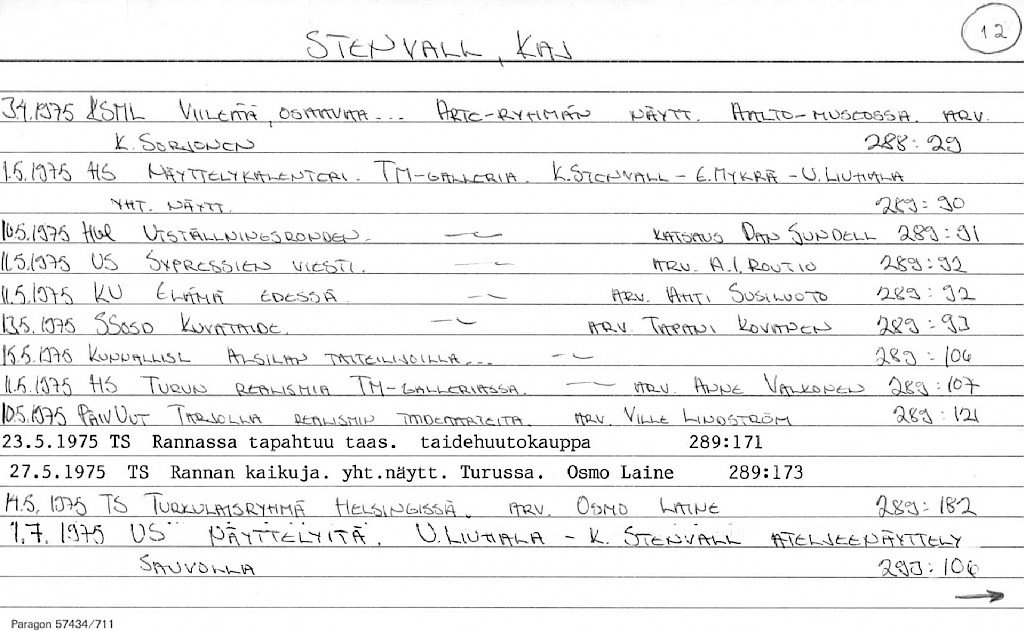 12
STENVALL, KAJ
3.4.1975 KSML VIILEÄTÄ, OSAAVAA... ARTE-RYHMÄN NÄYTT. AALTO-MUSEOSSA. ARV.
K. SORJONEN 288:29
1.5.1975 HS NÄYTTELYKALENTERI. TM-GALLERIA. K.STENVALL – E.MYKRÄ – U.LIUHALA
YHT. NÄYTT. 289:90
10.5.1975 Hbl UTSTÄLLNINGSRONDEN. —〃— KATSAUS DAN SUNDELL 289:91
11.5.1975 US SYPRESSIEN VIESTI. —〃— ARV. A.I. ROUTIO 289:92
11.5.1975 KU ELÄMÄ EDESSÄ. —〃— ARV. AHTI SUSILUOTO 289:92
13.5.1975 SSosD KUVATAIDE. —〃— ARV. TAPANI KOVANEN 289:93
15.5.1975 KUNNALLISL ALSILAN TAITEILIJOILLA... —〃— 289:104
11.5.1975 HS TURUN REALISMIA TM-GALLERIASSA. —〃— ARV. ANNE VALKONEN 289:107
10.5.1975 PÄIVUUT TARJOLLA REALISMIN TAIDEAARTEITA. ARV. VILLE LINDSTRÖM 289:121
23.5.1975 TS Rannassa tapahtuu taas. taidehuutokauppa 289:171
27.5.1975 TS Rannan kaikuja. yht.näytt. Turussa. Osmo Laine 289:173
14.5.1975 TS TURKULAISRYHMÄ HELSINGISSÄ. ARV. OSMO LAINE 289:182
1.7.1975 US NÄYTTELYITÄ. U.LIUHALA – K. STENVALL ATELJEENÄYTTELY
SAUVOLLA 290:106
→
Paragon 57434/711